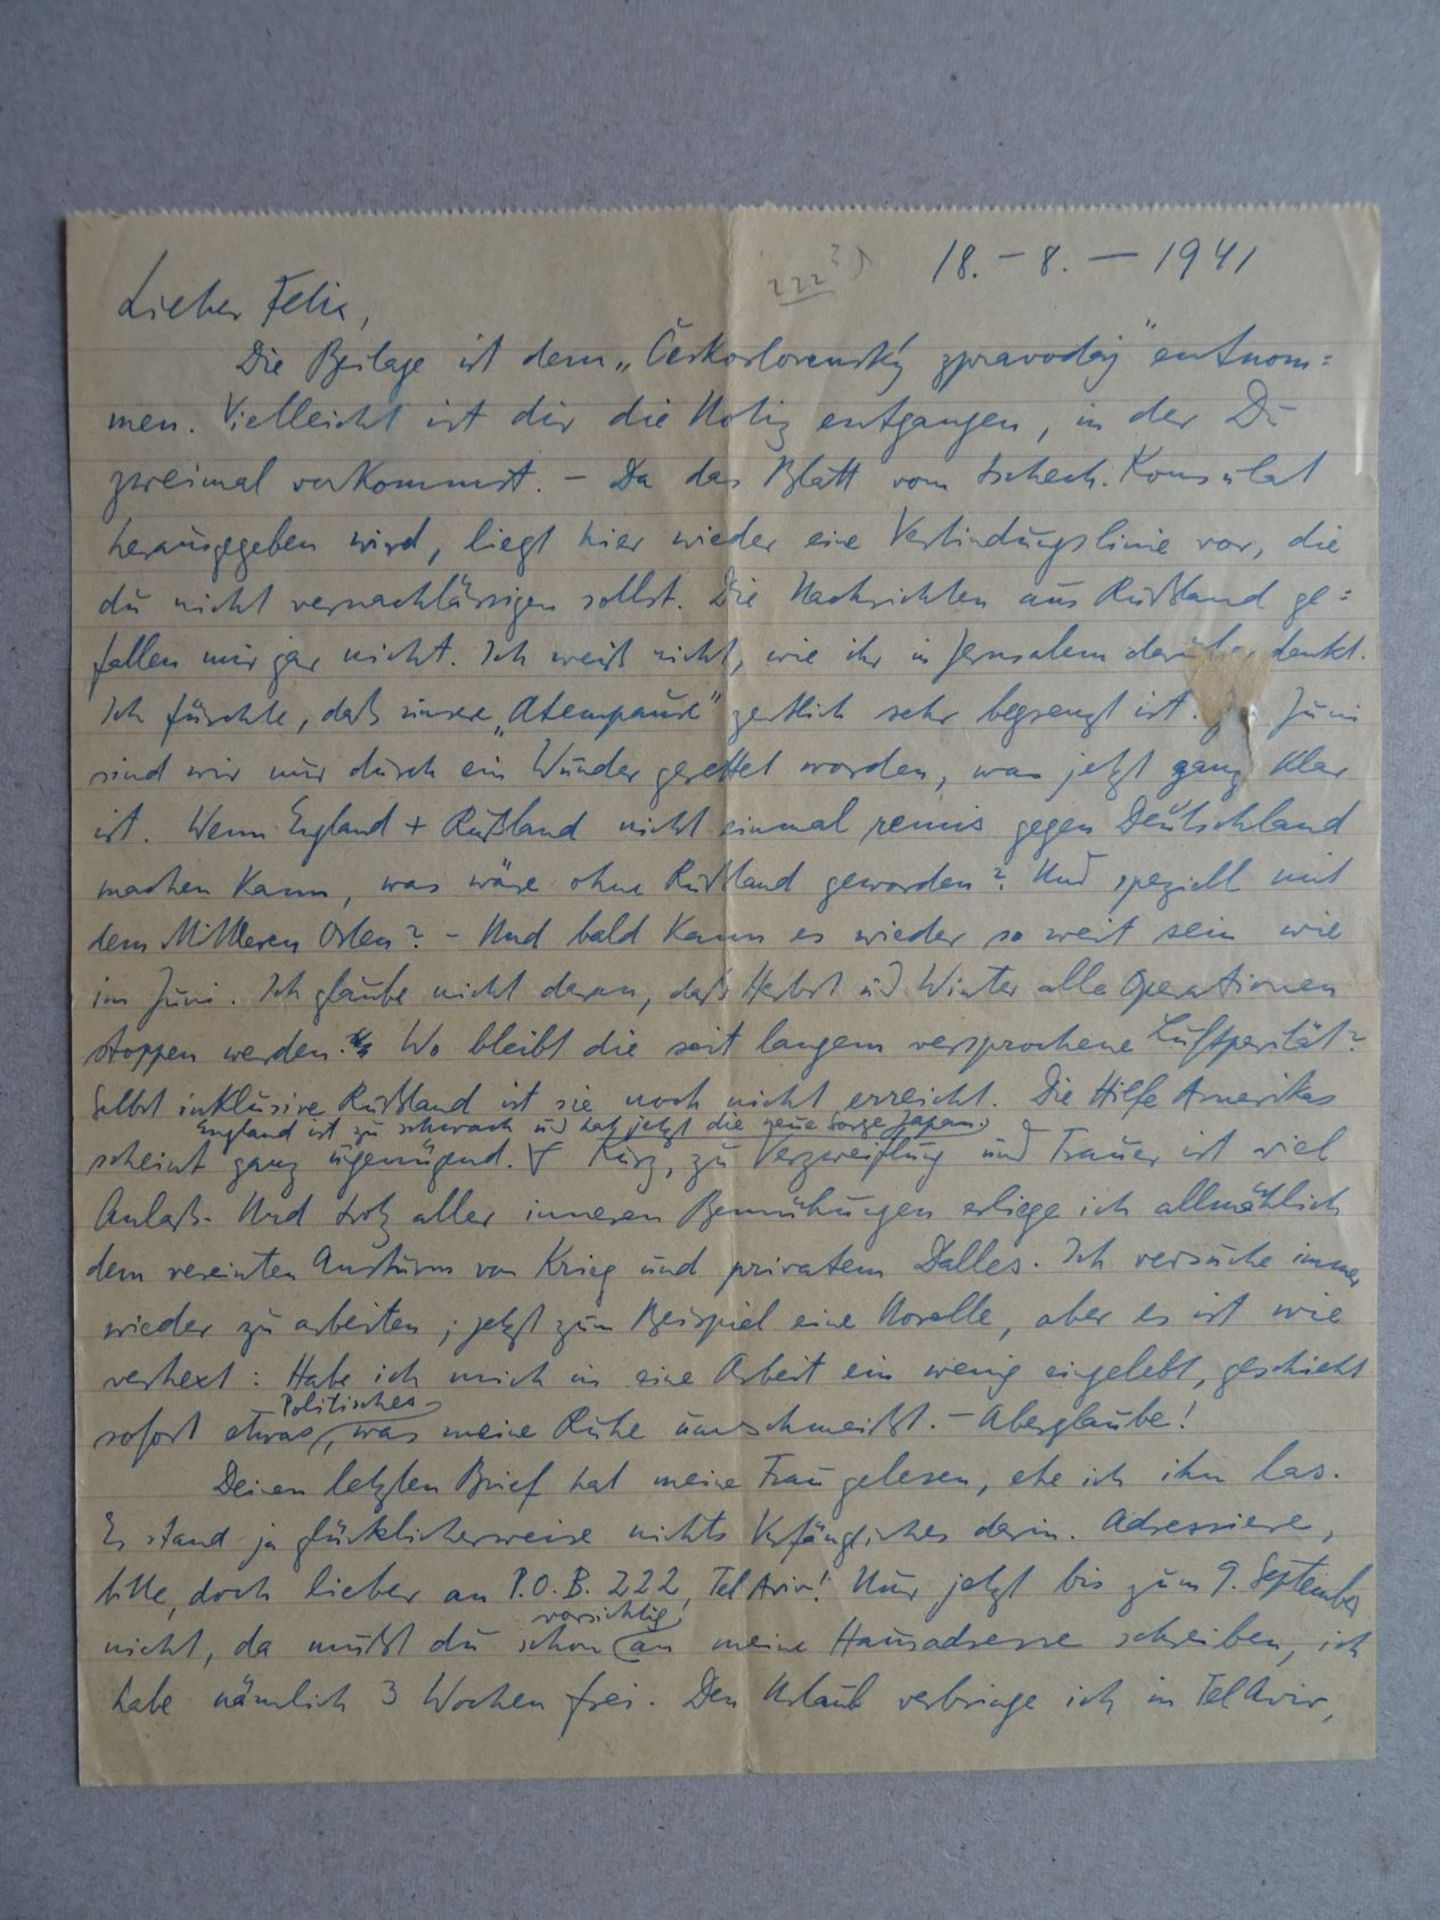 222
18. - 8. - 1941
Lieber Felix,
Die Beilage ist dem „Československý zpravodaj" entnom=
men. Vielleicht ist dir die Notiz entgangen, in der Du
zweimal vorkommst. - Da das Blatt vom tschech. Konsulat
herausgegeben wird, liegt hier wieder eine Verbindungslinie vor, die
du nicht vernachlässigen sollst. Die Nachrichten aus Rußland ge=
fallen mir gar nicht. Ich weiß nicht, wie ihr in Jerusalem darüber denkt.
Ich fürchte, daß unsere „Atempause" zeitlich sehr begrenzt ist. Juni
sind wir nur durch ein Wunder gerettet worden, was jetzt ganz klar
ist. Wenn England + Rußland nicht einmal remis gegen Deutschland
machen kann, was wäre ohne Rußland geworden? Und speziell mit
dem Mittleren Osten? - Und bald kann es wieder so weit sein wie
im Juni. Ich glaube nicht daran, daß Herbst und Winter alle Operationen
stoppen werden. Wo bleibt die seit langem versprochene Luftparität?
Selbst inklusive Rußland ist sie noch nicht erreicht. Die Hilfe Amerikas
England ist zu schwach und hat jetzt die neue Sorge Japan.
scheint ganz ungenügend. Kurz, zu Verzweiflung und Trauer ist viel
Anlaß. Und trotz aller inneren Bemühungen erliege ich allmählich
dem vereinten Ansturm von Krieg und privatem Dalles. Ich versuche immer
wieder zu arbeiten; jetzt zum Beispiel eine Novelle, aber es ist wie
verhext: Habe ich mich in eine Arbeit ein wenig eingelebt, geschieht
Politisches
sofort etwas, was meine Ruhe umschmeißt. - Aberglaube!
Deinen letzten Brief hat meine Frau gelesen, ehe ich ihn las.
Es stand ja glücklicherweise nichts Verfängliches darin. Adressiere,
bitte, doch lieber an P.O.B. 222, Tel Aviv! Nur jetzt bis zum 9. September
vorsichtig
nicht, da mußt du schon an meine Hausadresse schreiben, ich
habe nämlich 3 Wochen frei. Den Urlaub verbringe ich in Tel Aviv,